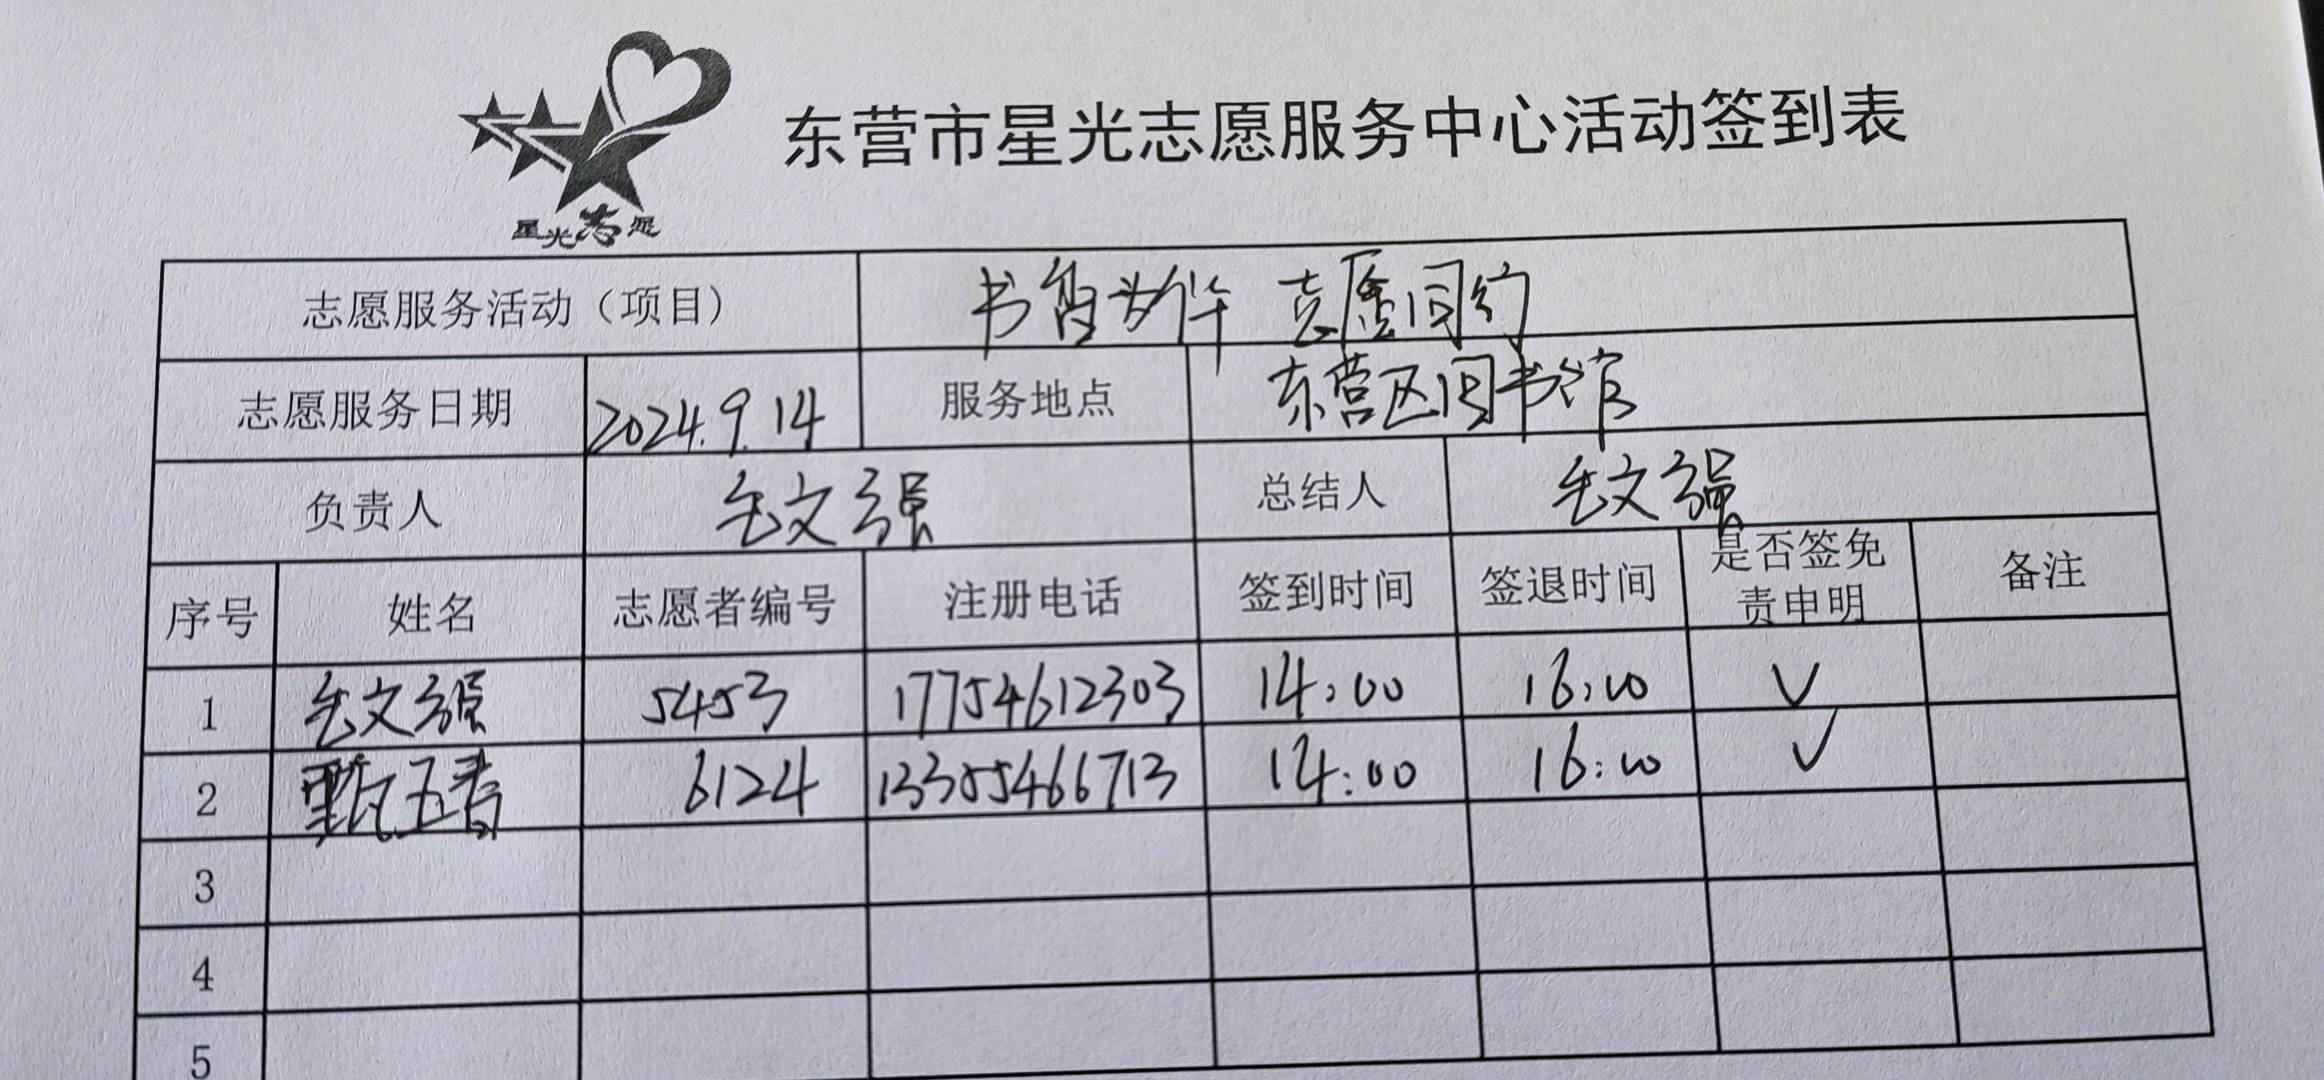 星光志愿
东营市星光志愿服务中心活动签到表
志愿服务活动（项目） 书香为伴 志愿同行
志愿服务日期 2024.9.14 服务地点 东营区图书馆
负责人 文强 总结人 文强
序号 姓名 志愿者编号 注册电话 签到时间 签退时间 是否签免责申明 备注
1 文强 5453 17754612303 14:00 16:00 √
2 甄玉春 6124 13355466713 14:00 16:00 √
3
4
5